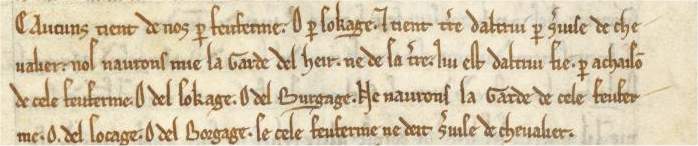 C Aucuns tient de nos ꝑ feuferme. O ꝑ sokage. ⁊ tient t̄re daltrui ꝑ s̄uise de che
ualier. nos naurons mie la Garde del heir. ne de sa t̄re. ki est daltrui fie. ꝑ achaisō
de cele feuferme. O del sokage. O del Burgage. Ne naurons la Garde de cele feufer
me. O. del socage. O del Borgage. se cele feuferme ne deit s̄uise de cheualier.